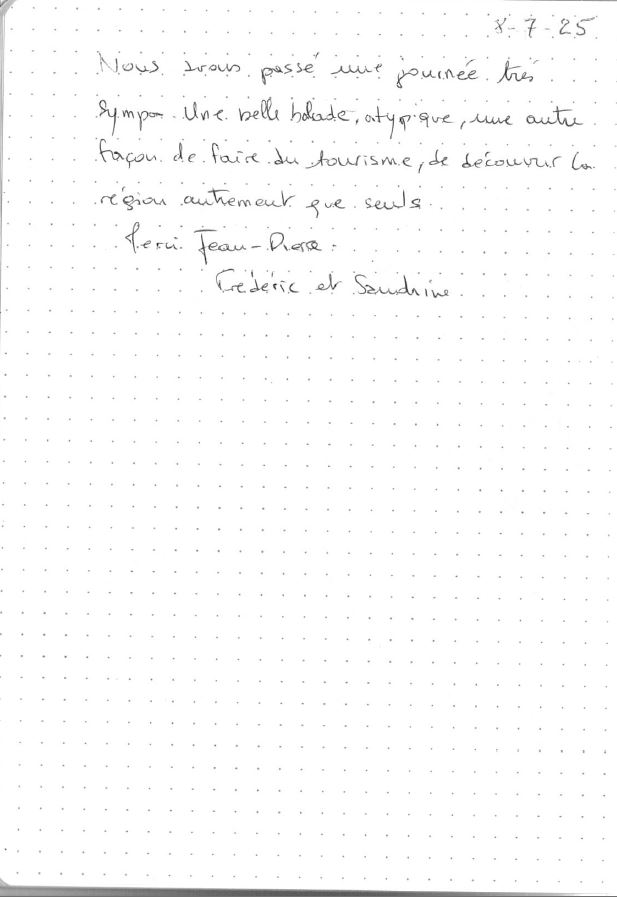 8-7-25
Nous avons passé une journée très
sympa. Une belle balade, atypique, une autre
façon de faire du tourisme, de découvrir la
région autrement que seuls.
Merci Jean-Pierre.
Frédéric et Sandrine.